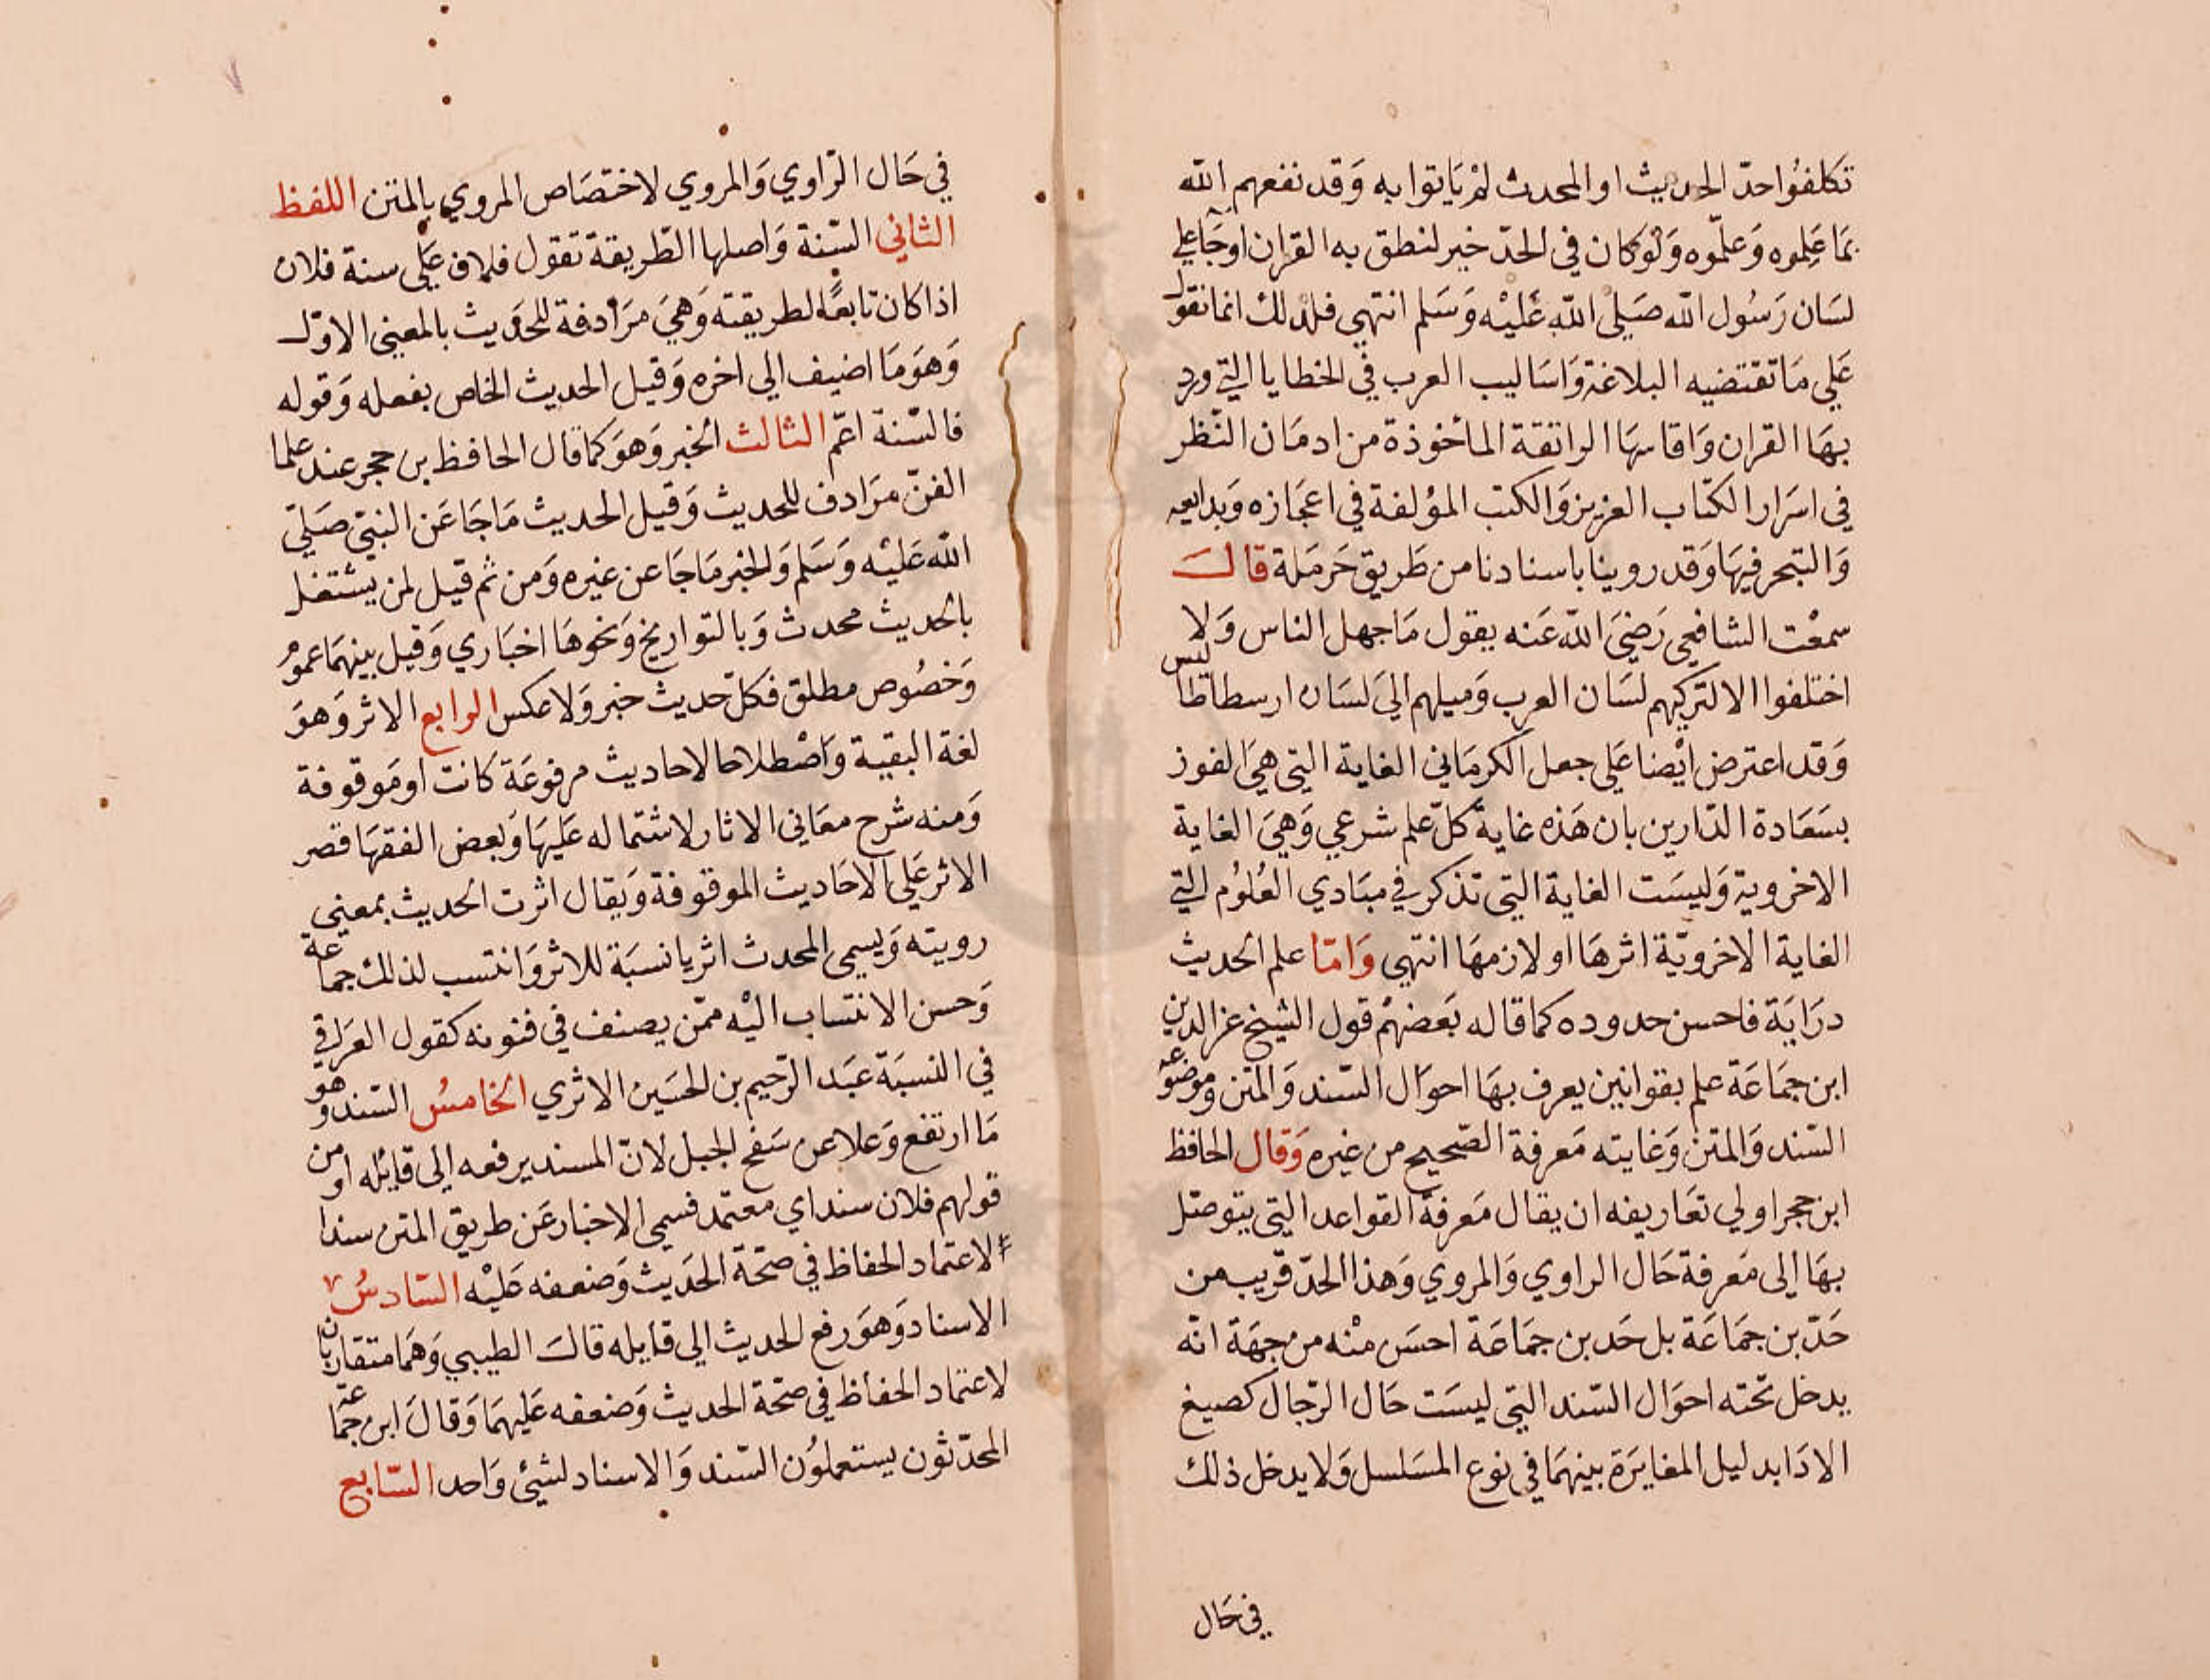 تكلفوا حدّ الحديث او المحدث لمْ يَاتوا به وَقد نفعهم الله
بمَا عَلِموه وَعلّموه وَلوْ كان في الحدّ خير لنطق به القران اوجَا علي
لسَان رَسُول الله صَلى الله عَليْه وَسَلم انتهي فلذلك انما نقول
عَلي مَا تقتضيه البلاغة وَاسَاليب العرب في الخطايا التي ورد
بهَا القران وَاقاسهَا الواتقة المأخوذة من ادمَان النّظر
في اسرَار الكتاب العزيز وَالكتب المؤلفة في اعجَازه وَبدايعه
وَالتبحر فيهَا وَقد روينا باسنادنا من طَريق حَرمَلة قالَ
سمعْت الشافعي رَضيَ الله عَنه يقول مَا جهل الناس وَلا
اختلفوا الا لتركهم لسَان العرب وَميلهم اليَ لسَان ارسطاطاليس
وَقد اعترض ايْضا عَلي جعل الكرمَاني الغاية التي هيَ الفوز
بسَعَادة الدّارين بان هَذه غاية كلّ علم شرعي وَهيَ الغاية
الاخروية وَليسَت الغاية التي تذكر في مبَادي العُلوُم التي
الغاية الاخرويّة اثرهَا او لازمهَا انتهي وَامّا علم الحديث
درَايَة فاحسن حدوده كما قاله بَعضهمْ قول الشيخ عز الدين
ابن جمَاعَة علم بقوانين يعرف بهَا احوَال السّند وَالمتن وموضوعه
السّند وَالمتن وَغايته مَعرفة الصّحيح من غيره وَقال الحافظ
ابن حجر اولي تعَاريفه ان يقال مَعرفة القواعد التي يتوصّل
بهَا إلى مَعرفة حَال الراوي وَالمروي وَهذا الحدّ قريب من
حَدّ بن جمَاعَة بل حَد بن جمَاعَة احسَن منْه من جهَة انّه
يدخل تحته احوَال السّند التي ليسَت حَال الرّجال كصيغ
الادَا بدليل المغايرَة بينهمَا في نوع المسَلسل وَلا يدخل ذلك
في حَال
في حَال الرّاوي وَالمروي لاختصَاص المروي بالمتن اللفظ
الثاني السّنة وَاصلها الطّريقة تقول فلان عَلي سنة فلان
اذا كان تابعًا لطريقته وَهيَ مرَادفة للحَديث بالمعني الاوّل
وَهوَ مَا اضيف الي اخره وَقيل الحديث الخاص بفعله وَقوله
فالسّنة اعمّ الثالث الخبر وَهوَ كما قال الحافظ بن حجر عند علما
الفنّ مرَادف للحديث وَقيل الحديث مَا جَا عَن النبيّ صَليّ
الله عَليْه وَسَلم وَالخبر مَا جَا عن غيره وَمن ثم قيل لمن يشتغل
بالحديث محدث وَبالتواريخ وَنحوهَا اخبَاري وَقيل بينهمَا عموُم
وَخصُوص مطلق فكلّ حديث خبر وَلا عكس الرابع الاثر وَهوَ
لغة البقية وَاصْطلاحا الاحاديث مرفوعَة كانت او مَوقوفة
وَمنه شرح معَاني الاثار لاشتماله عَليهَا وَبعض الفقهَا قصر
الاثر عَلي الاحَاديث الموقوفة وَيقال اثرت الحديث بمعني
رويته وَيسمي المحدث اثريا نسبَة للاثر وَانتسب لذلك جماعة
وَحسن الانتساب اليْه ممّن يصنف في فنونه كقول العرَاقي
في النسبَة عَبَد الرّحيم بن الحسَين الاثري الخامسُ السّند وهو
مَا ارتفع وَعلا عن سَفح الجبل لانّ المسند يرفعه إلى قايله او من
قولهم فلان سند اي معتمَد فسمي الاخبار عَن طريق المتن سندا
لاعتماد الحفاظ في صحّة الحَديث وَضعفه عَليْه السّادسُ
الاسناد وَهوَ رفع الحديث الي قايله قالَ الطيبي وَهمَا متقاربان
لاعتماد الحفاظ في صحّة الحديث وَضعفه عَليهمَا وَقالَ ابن جماعة
المحدّثون يستعملوُن السّند وَالاسناد لشيئ وَاحد السّابع